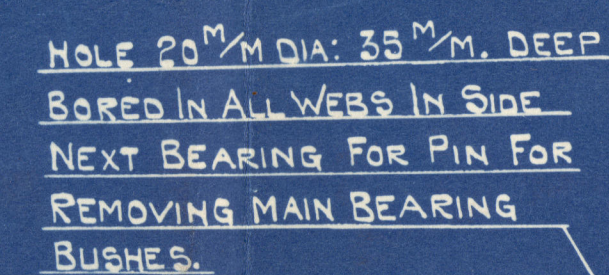 HOLE 20 M/M DIA: 35 M/M. DEEP
BORED IN ALL WEBS IN SIDE
NEXT BEARING FOR PIN FOR
REMOVING MAIN BEARING
BUSHES.